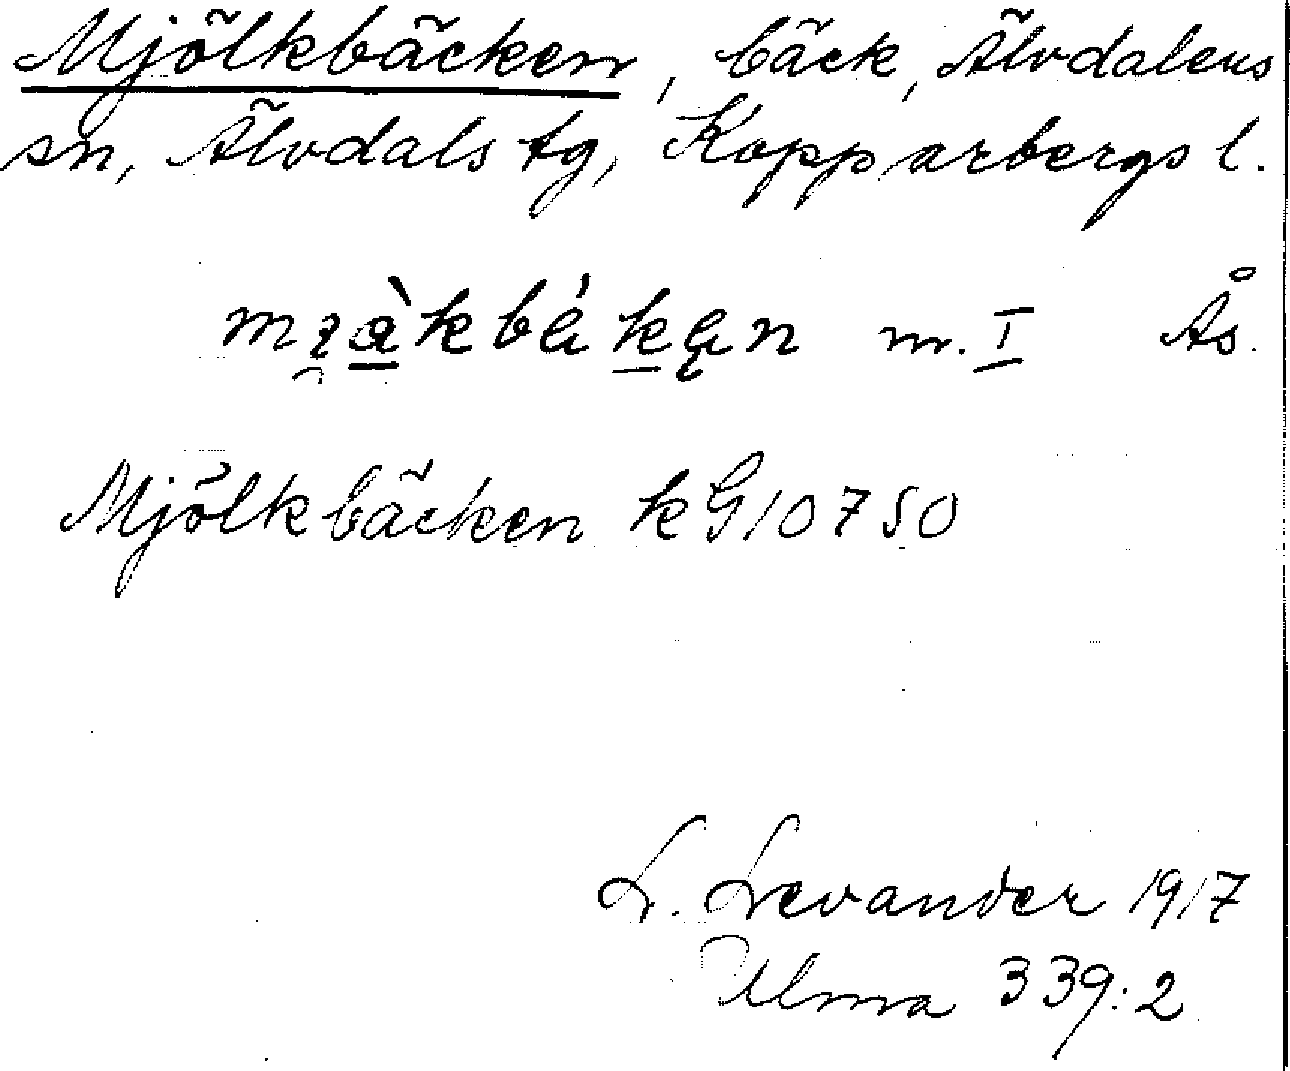 Mjölkbäcken, bäck, Älvdalens
sn, Älvdals tg, Kopparbergs l.
m. I Ås.
Mjölkbäcken kG10750
L. Levander 1917
Ulma 339:2